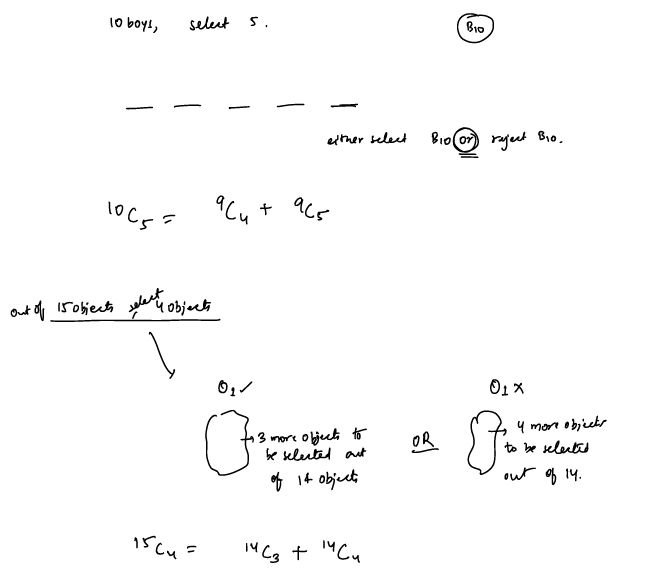 10 boys, select 5.
B10
either select B10 or reject B10.
¹⁰C₅ = ⁹C₄ + ⁹C₅
out of 15 objects select 4 objects
O1 ✓
O1 ×
3 more objects to be selected out of 14 objects
OR
4 more objects to be selected out of 14.
¹⁵C₄ = ¹⁴C₃ + ¹⁴C₄